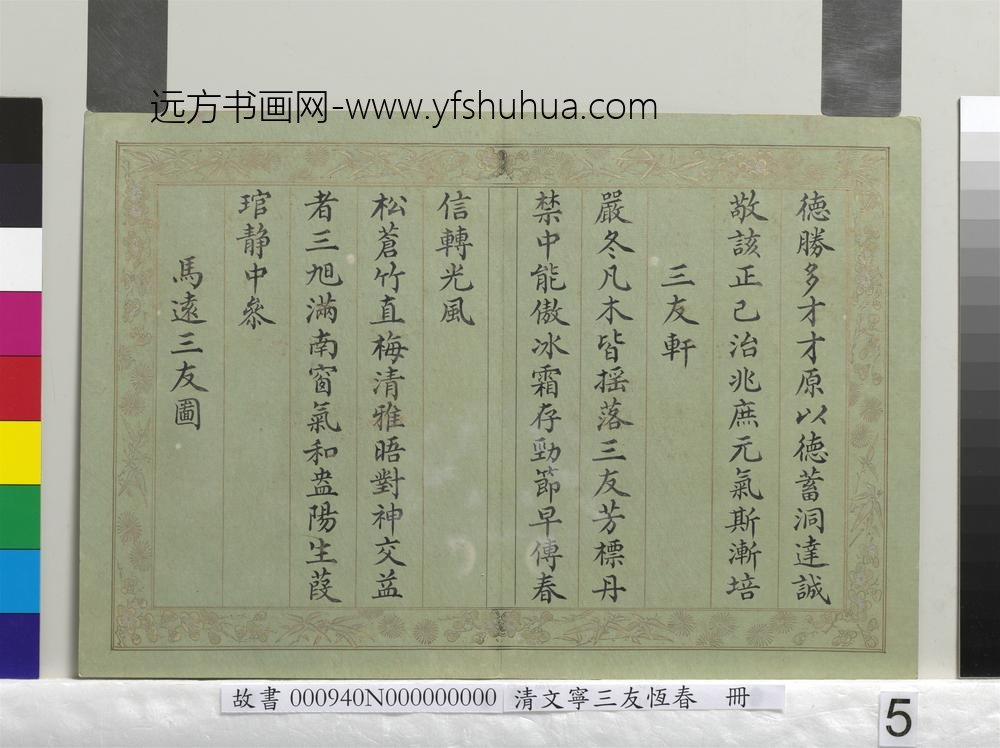 远方书画网-www.yfshuhua.com
徳勝多才才原以徳蓄洞達誠
敬該正己治兆庶元氣斯漸培
三友軒
嚴冬凡木皆揺落三友芳標丹
禁中能傲冰霜存勁節早傳春
信轉光風
松蒼竹直梅清雅晤對神交益
者三旭滿南窗氣和盎陽生葭
琯靜中叅
馬遠三友圖
故書 000940N000000000 清文寧三友恆春 冊
5